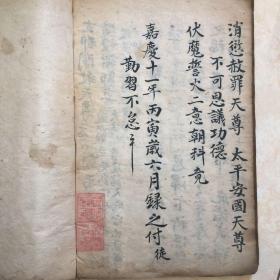 消愆赦罪天尊 太平安國天尊
不可思議功德
伏魔誓火二意朝科竟
嘉慶十一年丙寅歲六月録之付徒
勤習不怠